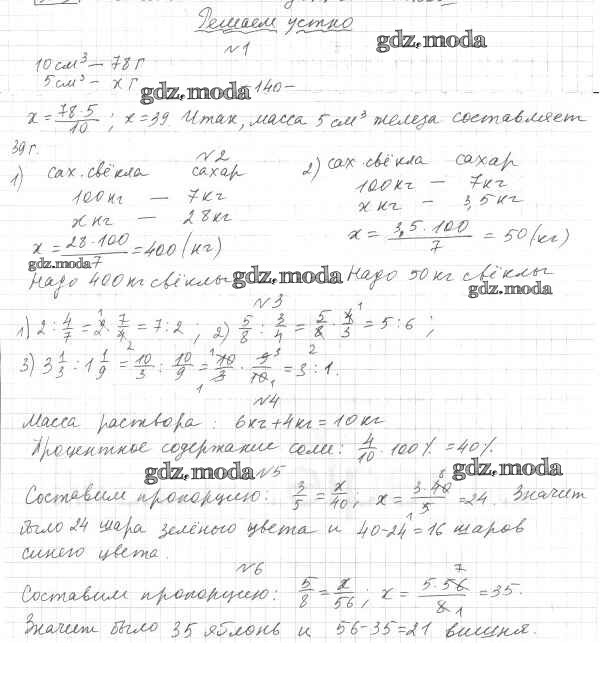 Решаем устно
№1
gdz.moda
10 см³ — 78 г
5 см³ — x г
gdz.moda -140-
x = 78·5/10 ; x = 39. Итак, масса 5 см³ железа составляет
39 г.
№2
1) сах. свёкла сахар
100 кг — 7 кг
x кг — 28 кг
x = 28·100/7 = 400 (кг)
gdz.moda
Надо 400 кг свёклы
gdz.moda
2) сах. свёкла сахар
100 кг — 7 кг
x кг — 3,5 кг
x = 3,5·100/7 = 50 (кг)
Надо 50 кг свёклы
gdz.moda
№3
1) 2 : 4/7 = 2 · 7/4 = 7:2 ; 2) 5/8 : 3/4 = 5/8 · 4/3 = 5:6 ;
3) 3 1/3 : 1 1/9 = 10/3 : 10/9 = 10/3 · 9/10 = 3:1.
№4
Масса раствора: 6 кг + 4 кг = 10 кг
Процентное содержание соли: 4/10 · 100% = 40%
gdz.moda №5 gdz.moda
Составим пропорцию: 3/5 = x/40 ; x = 3·40/5 = 24. Значит
было 24 шара зелёного цвета и 40-24=16 шаров
синего цвета.
№6
Составим пропорцию: 5/8 = x/56 ; x = 5·56/8 = 35.
Значит было 35 яблонь и 56-35=21 вишня.